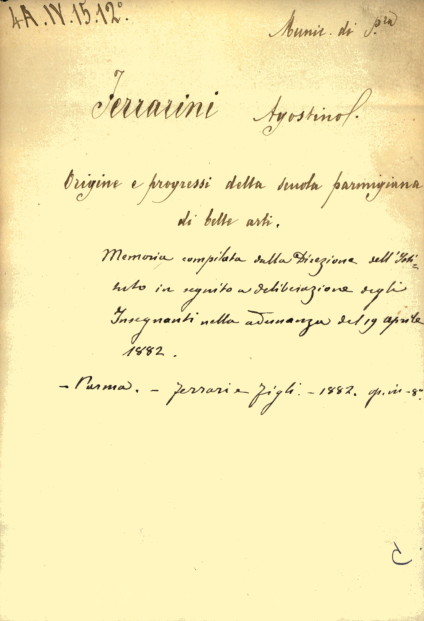 4A.IV.15.12°.
Munic. di P.ra
Ferrarini Agostino.
Origine e progressi della scuola parmigiana
di belle arti.
Memoria compilata dalla Direzione dell'Isti-
tuto in seguito a deliberazione degli
Insegnanti nella adunanza del 19 aprile
1882.
- Parma. - Ferrari e Figli. - 1882. op. in-8°